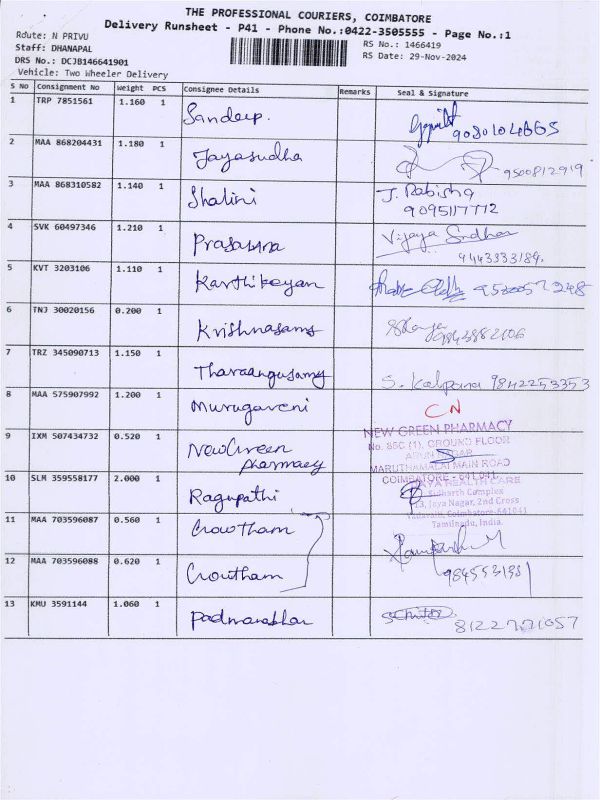 THE PROFESSIONAL COURIERS, COIMBATORE
Delivery Runsheet - P41 - Phone No.:0422-3505555 - Page No.:1
Route: N PRIVU
RS No.: 1466419
Staff: DHANAPAL
RS Date: 29-Nov-2024
DRS No.: DCJB146641901
Vehicle: Two Wheeler Delivery
S No Consignment No Weight PCS Consignee Details Remarks Seal & Signature
1 TRP 7851561 1.160 1 Sandeep.
2 MAA 868204431 1.180 1 Jayasudha 9500812919
3 MAA 868310582 1.140 1 Shalini J. Rabisha
9095117772
4 SVK 60497346 1.210 1 Prasabana Vijaya Sridhar
9443333184.
5 KVT 3203106 1.110 1 Karthikeyan
6 TNJ 30020156 0.200 1 Krishnasamy 9843882106
7 TRZ 345090713 1.150 1 Tharaangusamy S. Kalpana 9842253353
8 MAA 575907992 1.200 1 Murugaveni CN
9 IXM 507434732 0.520 1 NewGreen
pharmacy
NEW GREEN PHARMACY
No. 85C (1), GROUND FLOOR
ARUN NAGAR
MARUTHAMALAI MAIN ROAD
COIMBATORE - 641 041
10 SLM 359558177 2.000 1 Ragupathi
JAYA HEALTH CARE
Sidharth Complex
13, Jaya Nagar, 2nd Cross
Vadavalli, Coimbatore-641041
Tamilnadu, India.
11 MAA 703596087 0.560 1 Crowtham
12 MAA 703596088 0.620 1 Croutham
13 KMU 3591144 1.060 1 Padmanabhan